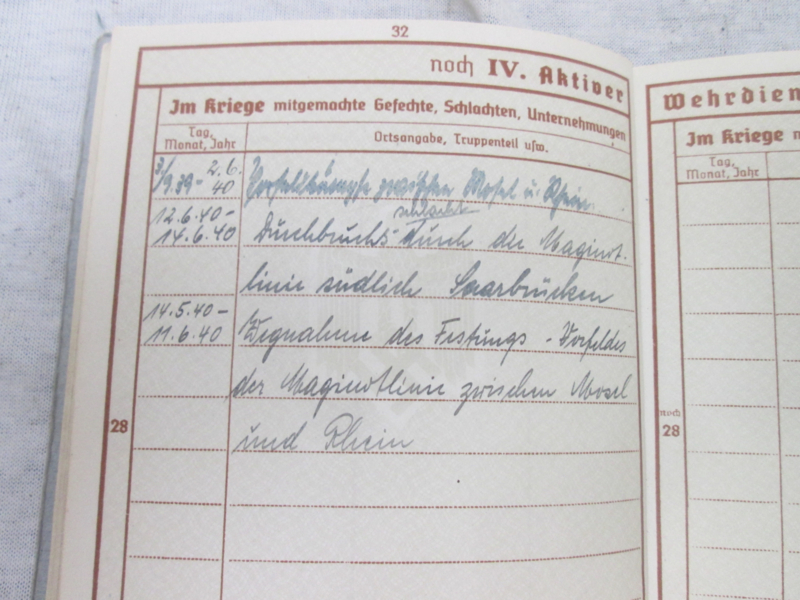 32
noch IV. Aktiver
Im Kriege mitgemachte Gefechte, Schlachten, Unternehmungen
Tag, Monat, Jahr
Ortsangabe, Truppenteil usw.
3./9.39 - 2.6.40 Vorfeldkämpfe zwischen Mosel u. Rhein.
schlacht
12.6.40 - 14.6.40 Durchbruchs durch die Maginot-
linie südlich Saarbrücken
14.5.40 - 11.6.40 Wegnahme des Festungs - Vorfeldes
der Maginotlinie zwischen Mosel
und Rhein
28
Wehrdien
Im Kriege m
Tag, Monat, Jahr
noch
28